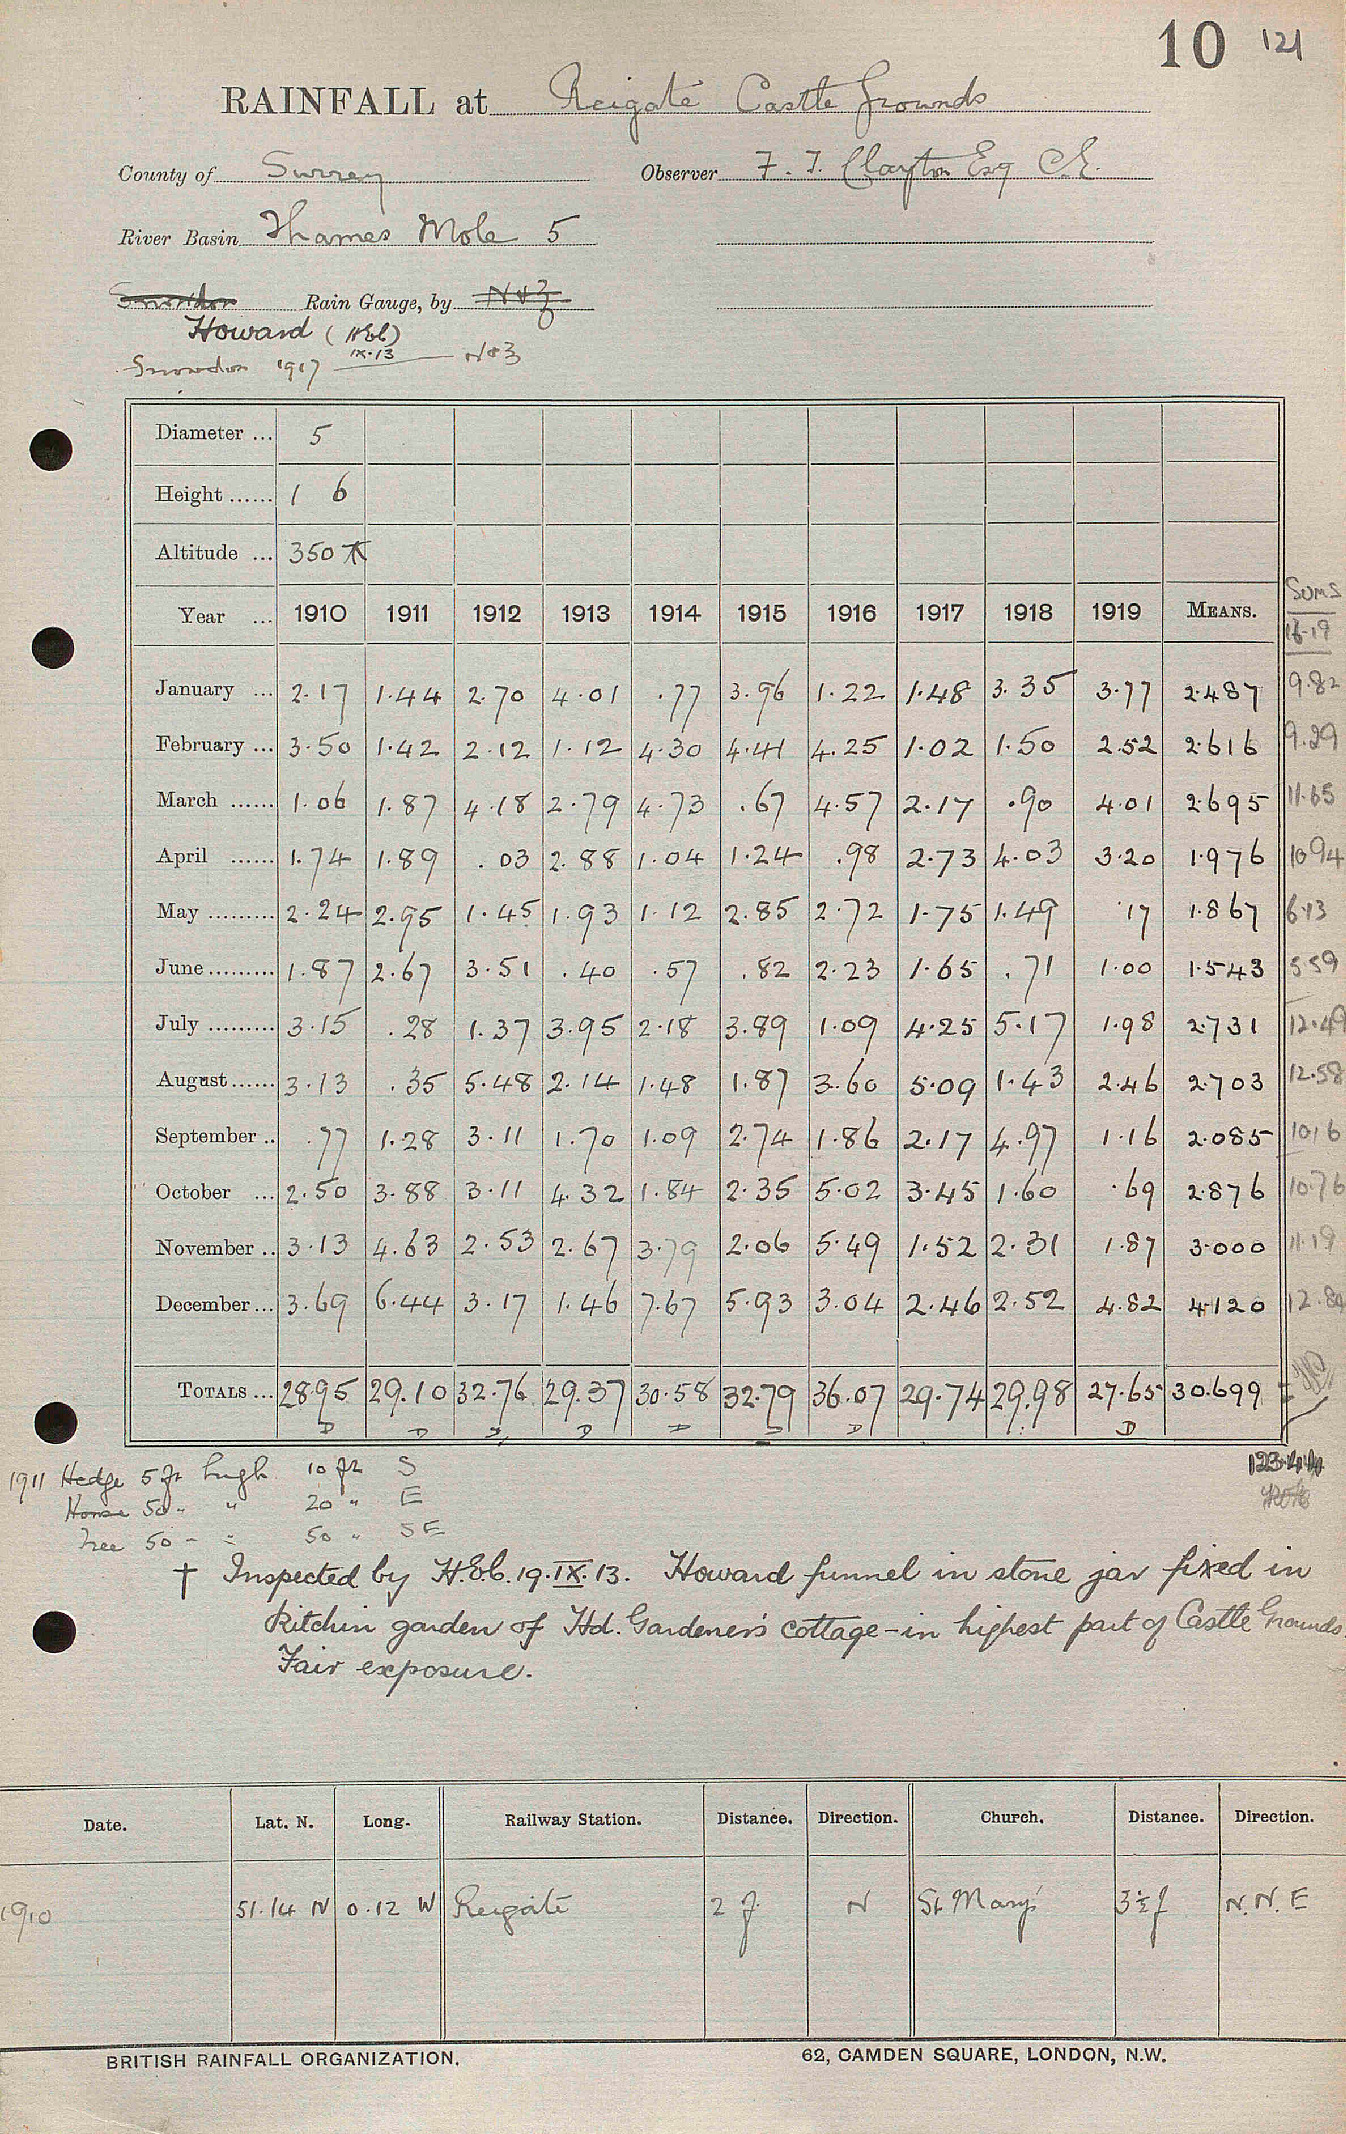 10 121
RAINFALL at Reigate Castle Grounds
County of Surrey Observer F. T. Clayton Esq C.E.
River Basin Thames Mole 5
Snowdon Rain Gauge, by N & Z
Howard (HEb)
IX.13
Snowdon 1917 N & Z
Diameter ... 5
Height ...... 1 6
Altitude ... 350
Sums
Year ... 1910 1911 1912 1913 1914 1915 1916 1917 1918 1919 MEANS. 16-19
January ... 2.17 1.44 2.70 4.01 .77 3.96 1.22 1.48 3.35 3.77 2.487 9.82
February ... 3.50 1.42 2.12 1.12 4.30 4.41 4.25 1.02 1.50 2.52 2.616 9.29
March ...... 1.06 1.87 4.18 2.79 4.73 .67 4.57 2.17 .90 4.01 2.695 11.65
April ...... 1.74 1.89 .03 2.88 1.04 1.24 .98 2.73 4.03 3.20 1.976 10.94
May ......... 2.24 2.95 1.45 1.93 1.12 2.85 2.72 1.75 1.49 .17 1.867 6.13
June ......... 1.87 2.67 3.51 .40 .57 .82 2.23 1.65 .71 1.00 1.543 5.59
July ......... 3.15 .28 1.37 3.95 2.18 3.89 1.09 4.25 5.17 1.98 2.731 12.49
August ...... 3.13 .35 5.48 2.14 1.48 1.87 3.60 5.09 1.43 2.46 2.703 12.58
September .. .77 1.28 3.11 1.70 1.09 2.74 1.86 2.17 4.97 1.16 2.085 10.16
October ... 2.50 3.88 3.11 4.32 1.84 2.35 5.02 3.45 1.60 .69 2.876 10.76
November .. 3.13 4.63 2.53 2.67 3.79 2.06 5.49 1.52 2.31 1.87 3.000 11.19
December ... 3.69 6.44 3.17 1.46 7.67 5.93 3.04 2.46 2.52 4.82 4.120 12.84
TOTALS ... 28.95 29.10 32.76 29.37 30.58 32.79 36.07 29.74 29.98 27.65 30.699
D D D D D D D D
123.44
1911 Hedge 5 ft high 10 ft S
House 50 " " 20 " E
Tree 50 " " 50 " SE
† Inspected by H.E.b. 19.IX.13. Howard funnel in stone jar fixed in
kitchin garden of Hd. Gardener's cottage - in highest part of Castle Grounds.
Fair exposure.
Date. Lat. N. Long. Railway Station. Distance. Direction. Church. Distance. Direction.
1910 51.14 N 0.12 W Reigate 2 f. N St Mary's 3½ f N.N.E
BRITISH RAINFALL ORGANIZATION. 62, CAMDEN SQUARE, LONDON, N.W.